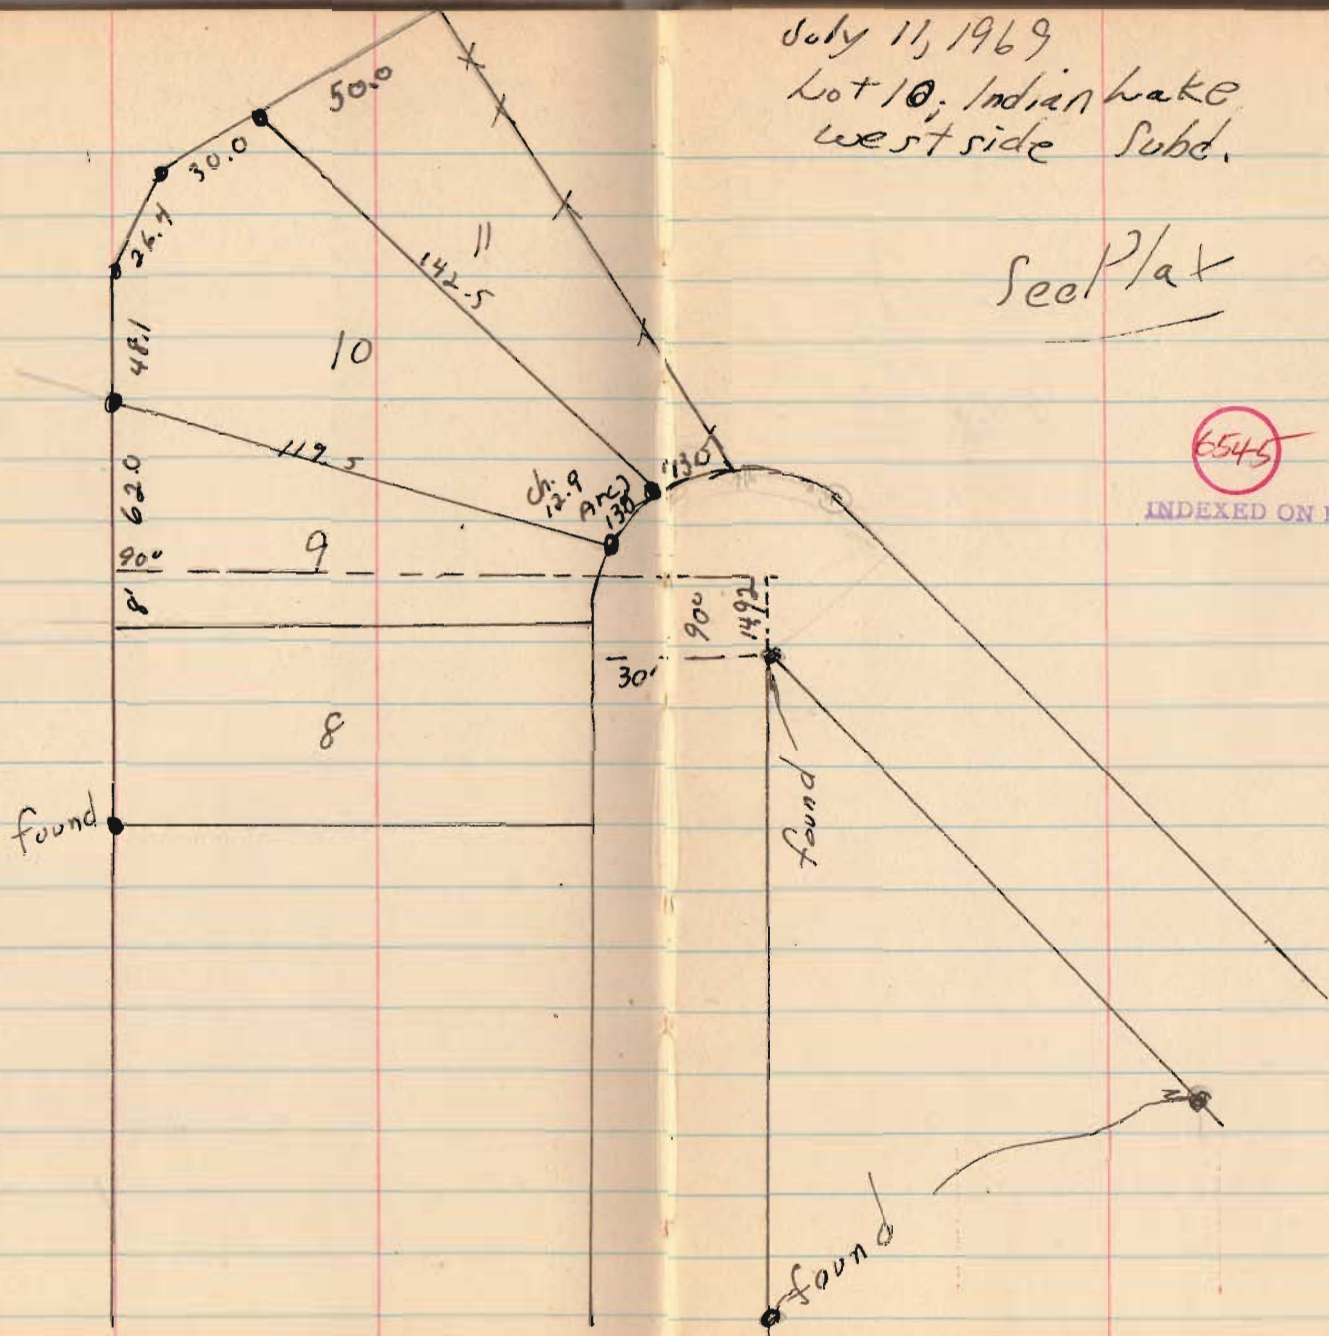 July 11, 1969
Lot 10, Indian Lake
west side Subd.
See Plat
6545
INDEXED ON
50.0
30.0
26.4
11
142.5
48.1
10
119.5
62.0
ch.
12.9
Arc
130
130
90°
9
8'
90°
30'
8
found
found
found